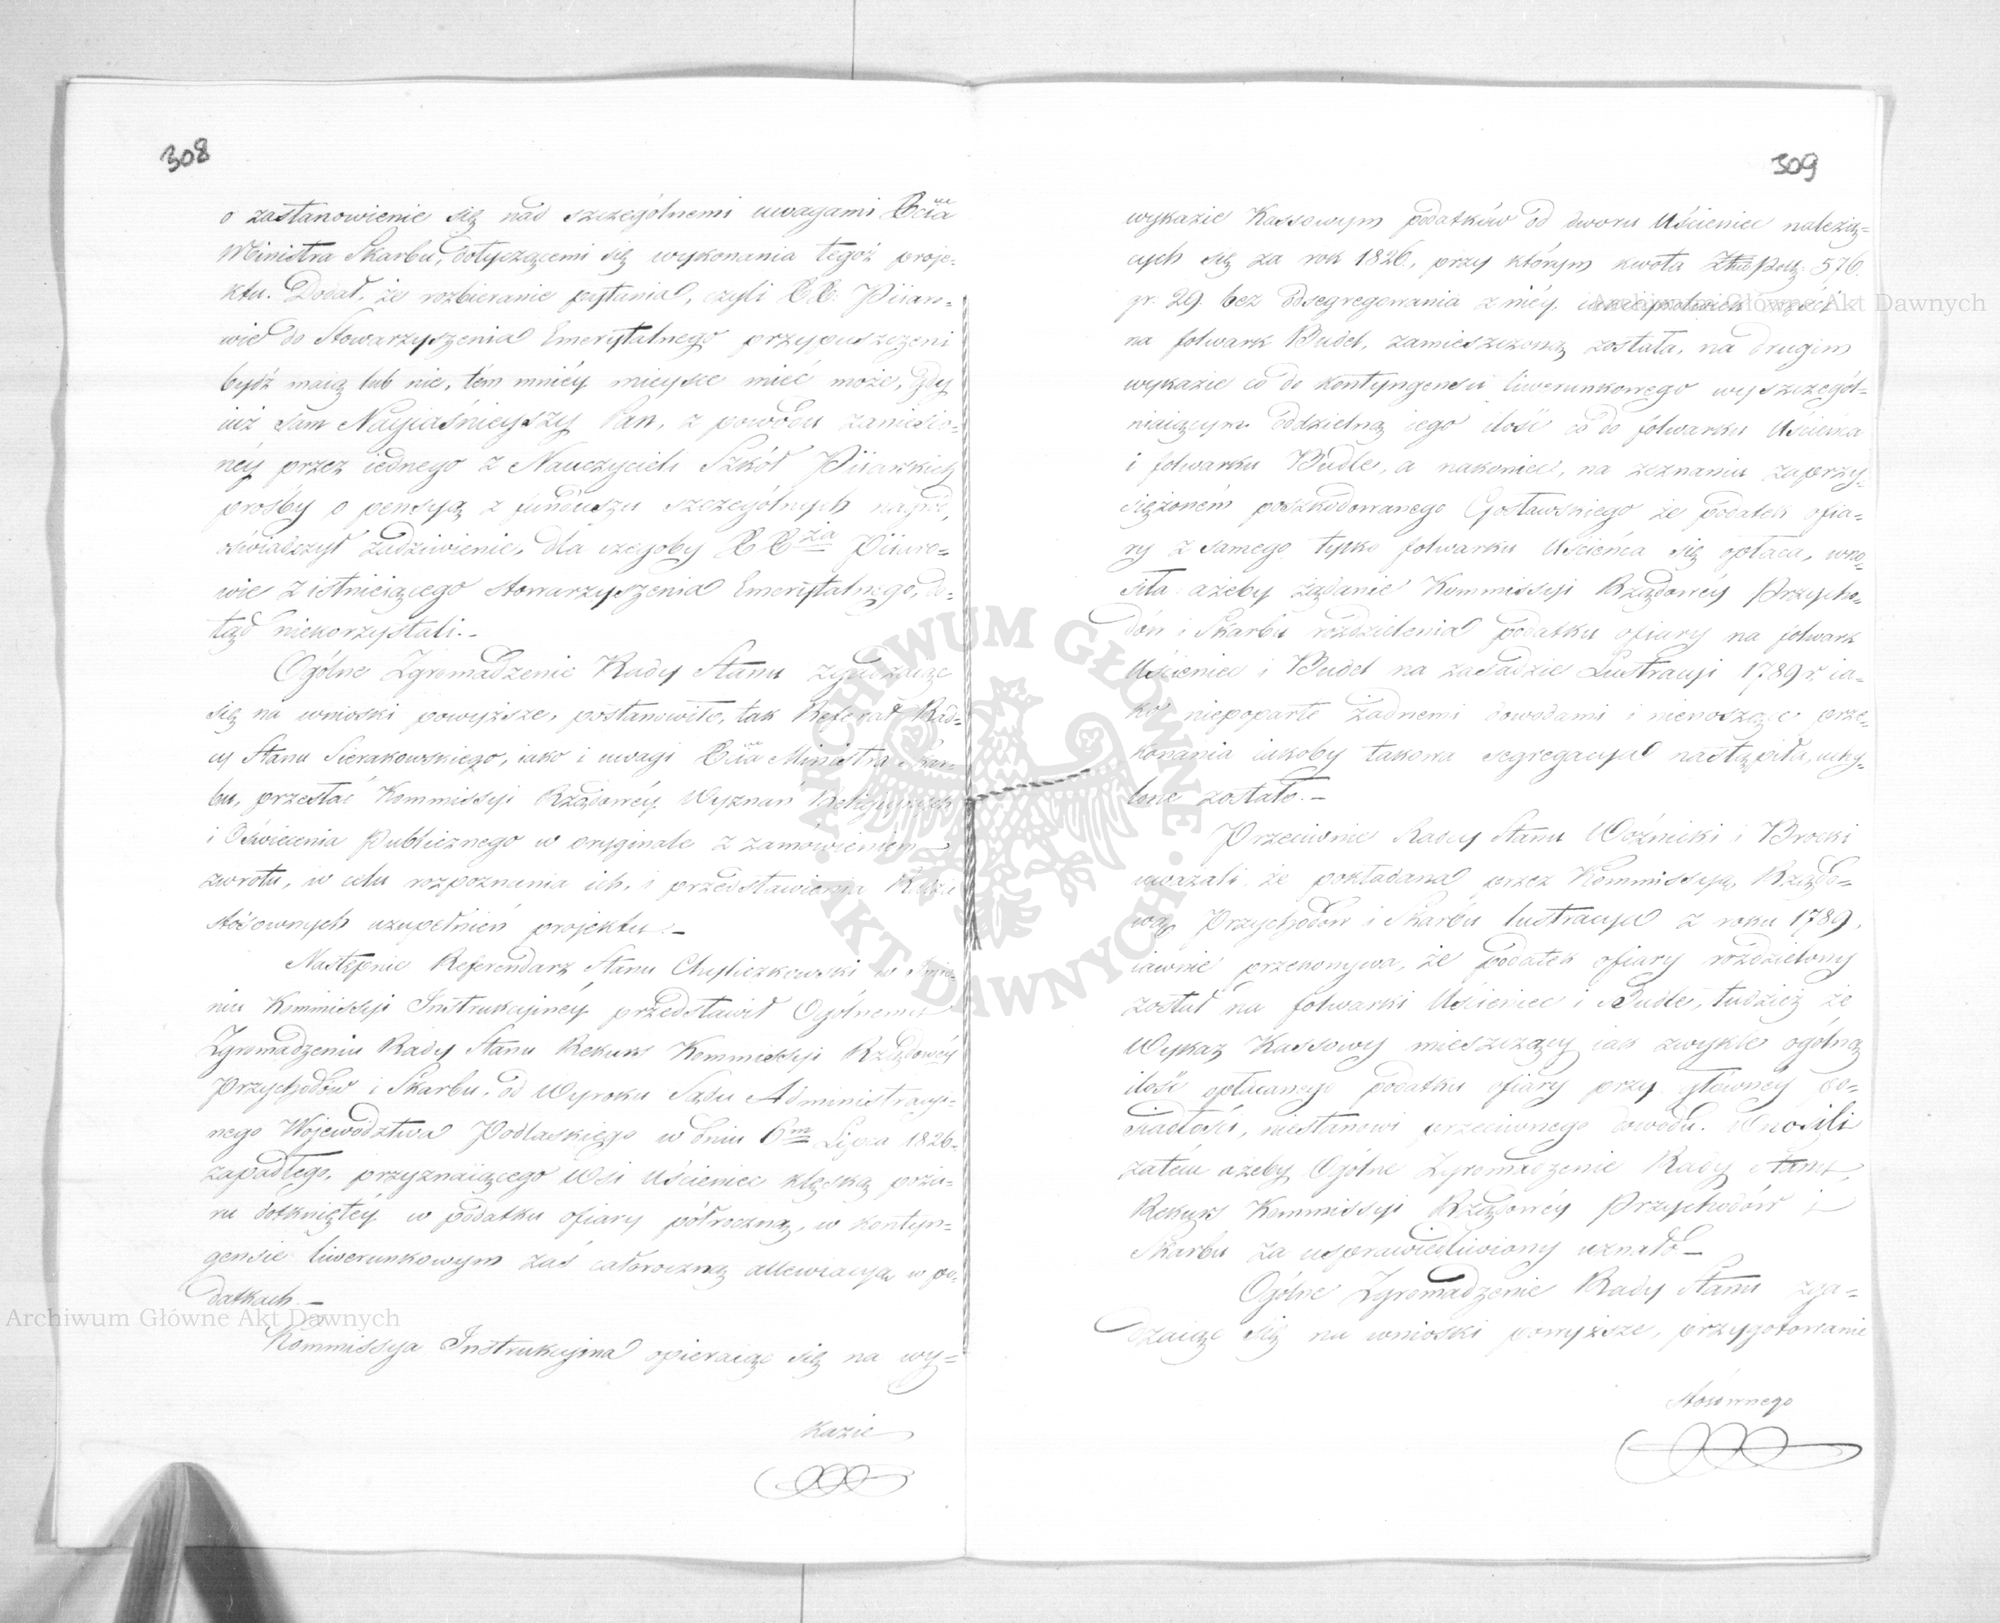 308
o zastanowienie się nad szczególnemi uwagami
Ministra Skarbu, dotyczącemi się wykonania tegoż proje-
ktu. Dodał, że rozbieranie pytania, czyli Piiaro-
wie do Stowarzyszenia Emerytalnego przypuszczeni
bydź maią lub nie, tém mniéy mieysce mieć może, gdy
iuż sam Nayiaśnieyszy Pan, z powodu zaniesio-
néy przez iednego z Nauczycieli Szkół Piiarskich
prośby o pensyą z funduszu szczególnych nagród,
oświadczył zadziwienie, dla czegoby Piiaro-
wie z istnieiącego stowarzyszenia Emerytalnego, do-
tąd niekorzystali.-
Ogólne Zgromadzenie Rady Stanu zgadzaiąc
się na wnioski powyższe, postanowiło, tak Referat Rad-
cy Stanu Sierakowskiego, iako i uwagi Ministra Skar-
bu, przesłać Kommissyi Rządowéy Wyznań Religiynych
i Oświecenia Publicznego w oryginale z zamówieniem
zwrotu, w celu rozpoznania ich, i przedstawienia Radzie
stósownych uzupełnień projektu.-
Następnie Referendarz Stanu Chyliczkowski w Imie-
niu Kommissyi Instrukcyinéy przedstawił Ogólnemu
Zgromadzeniu Rady Stanu Rekurs Kommissyi Rządowéy
Przychodów i Skarbu, od Wyroku Sądu Administracyi-
nego Województwa Podlaskiego w dniu 6m Lipca 1826.
zapadłego, przyznaiącego Wsi Uścieniec klęską
dotkniętéy w podatku ofiary półroczną, w kontyn-
gensie liwerunkowym zaś całoroczną allewiacyą w po-
datkach.-
Kommissya Instrukcyina opieraiąc się na wy=
kazie
309
wykazie Kassowym podatków od dworu Uścieniec należą=
cych się za rok 1826, przy którym kwota 576.
gr. 29. bez odsegregowania z niéy iakieykolwiek części
na folwark Budel, zamieszczoną została, na drugim
wykazie co do kontyngensu liwerunkowego wyszczegól-
niaiącym oddzielną iego ilość co do folwarku Uścieńca
i folwarku Budle, a nakoniec, na zeznaniu zaprzy-
siężoném poszkodowanego Gosławskiego że podatek ofia-
ry z samego tylko folwarku Uścieńca się opłaca, wno-
siła ażeby żądanie Kommissyi Rządowéy Przycho-
dów i Skarbu rozdzielenia podatku ofiary na folwark
Uścieniec i Budel na zasadzie Lustracyi 1789 r. ia-
ko niepoparte żadnemi dowodami i nienoszące prze-
konania iakoby takowa segregacya nastąpiła, uchy-
lone zostało.-
Przeciwnie Radcy Stanu Woźnicki i Brocki
uważali że pokładana przez Kommissyą Rządo-
wą Przychodów i Skarbu lustracya z roku 1789,
iawnie przekonywa, że podatek ofiary rozdzielony
został na folwarki Uścieniec i Budle, tudzież że
Wykaz Kassowy mieszczący iak zwykle ogólną
ilość opłacanego podatku ofiary przy głównéy po-
siadłości, niestanowi przeciwnego dowodu. Wnosili
zatém ażeby Ogólne Zgromadzenie Rady Stanu,
Rekurs Kommissyi Rządowéy Przychodów i
Skarbu za usprawiedliwiony uznało-
Ogólne Zgromadzenie Rady Stanu zga-
dzaiąc się na wnioski powyższe, przygotowanie
stósownego
Archiwum Główne Akt Dawnych
Archiwum Główne Akt Dawnych
ARCHIWUM GŁÓWNE AKT DAWNYCH